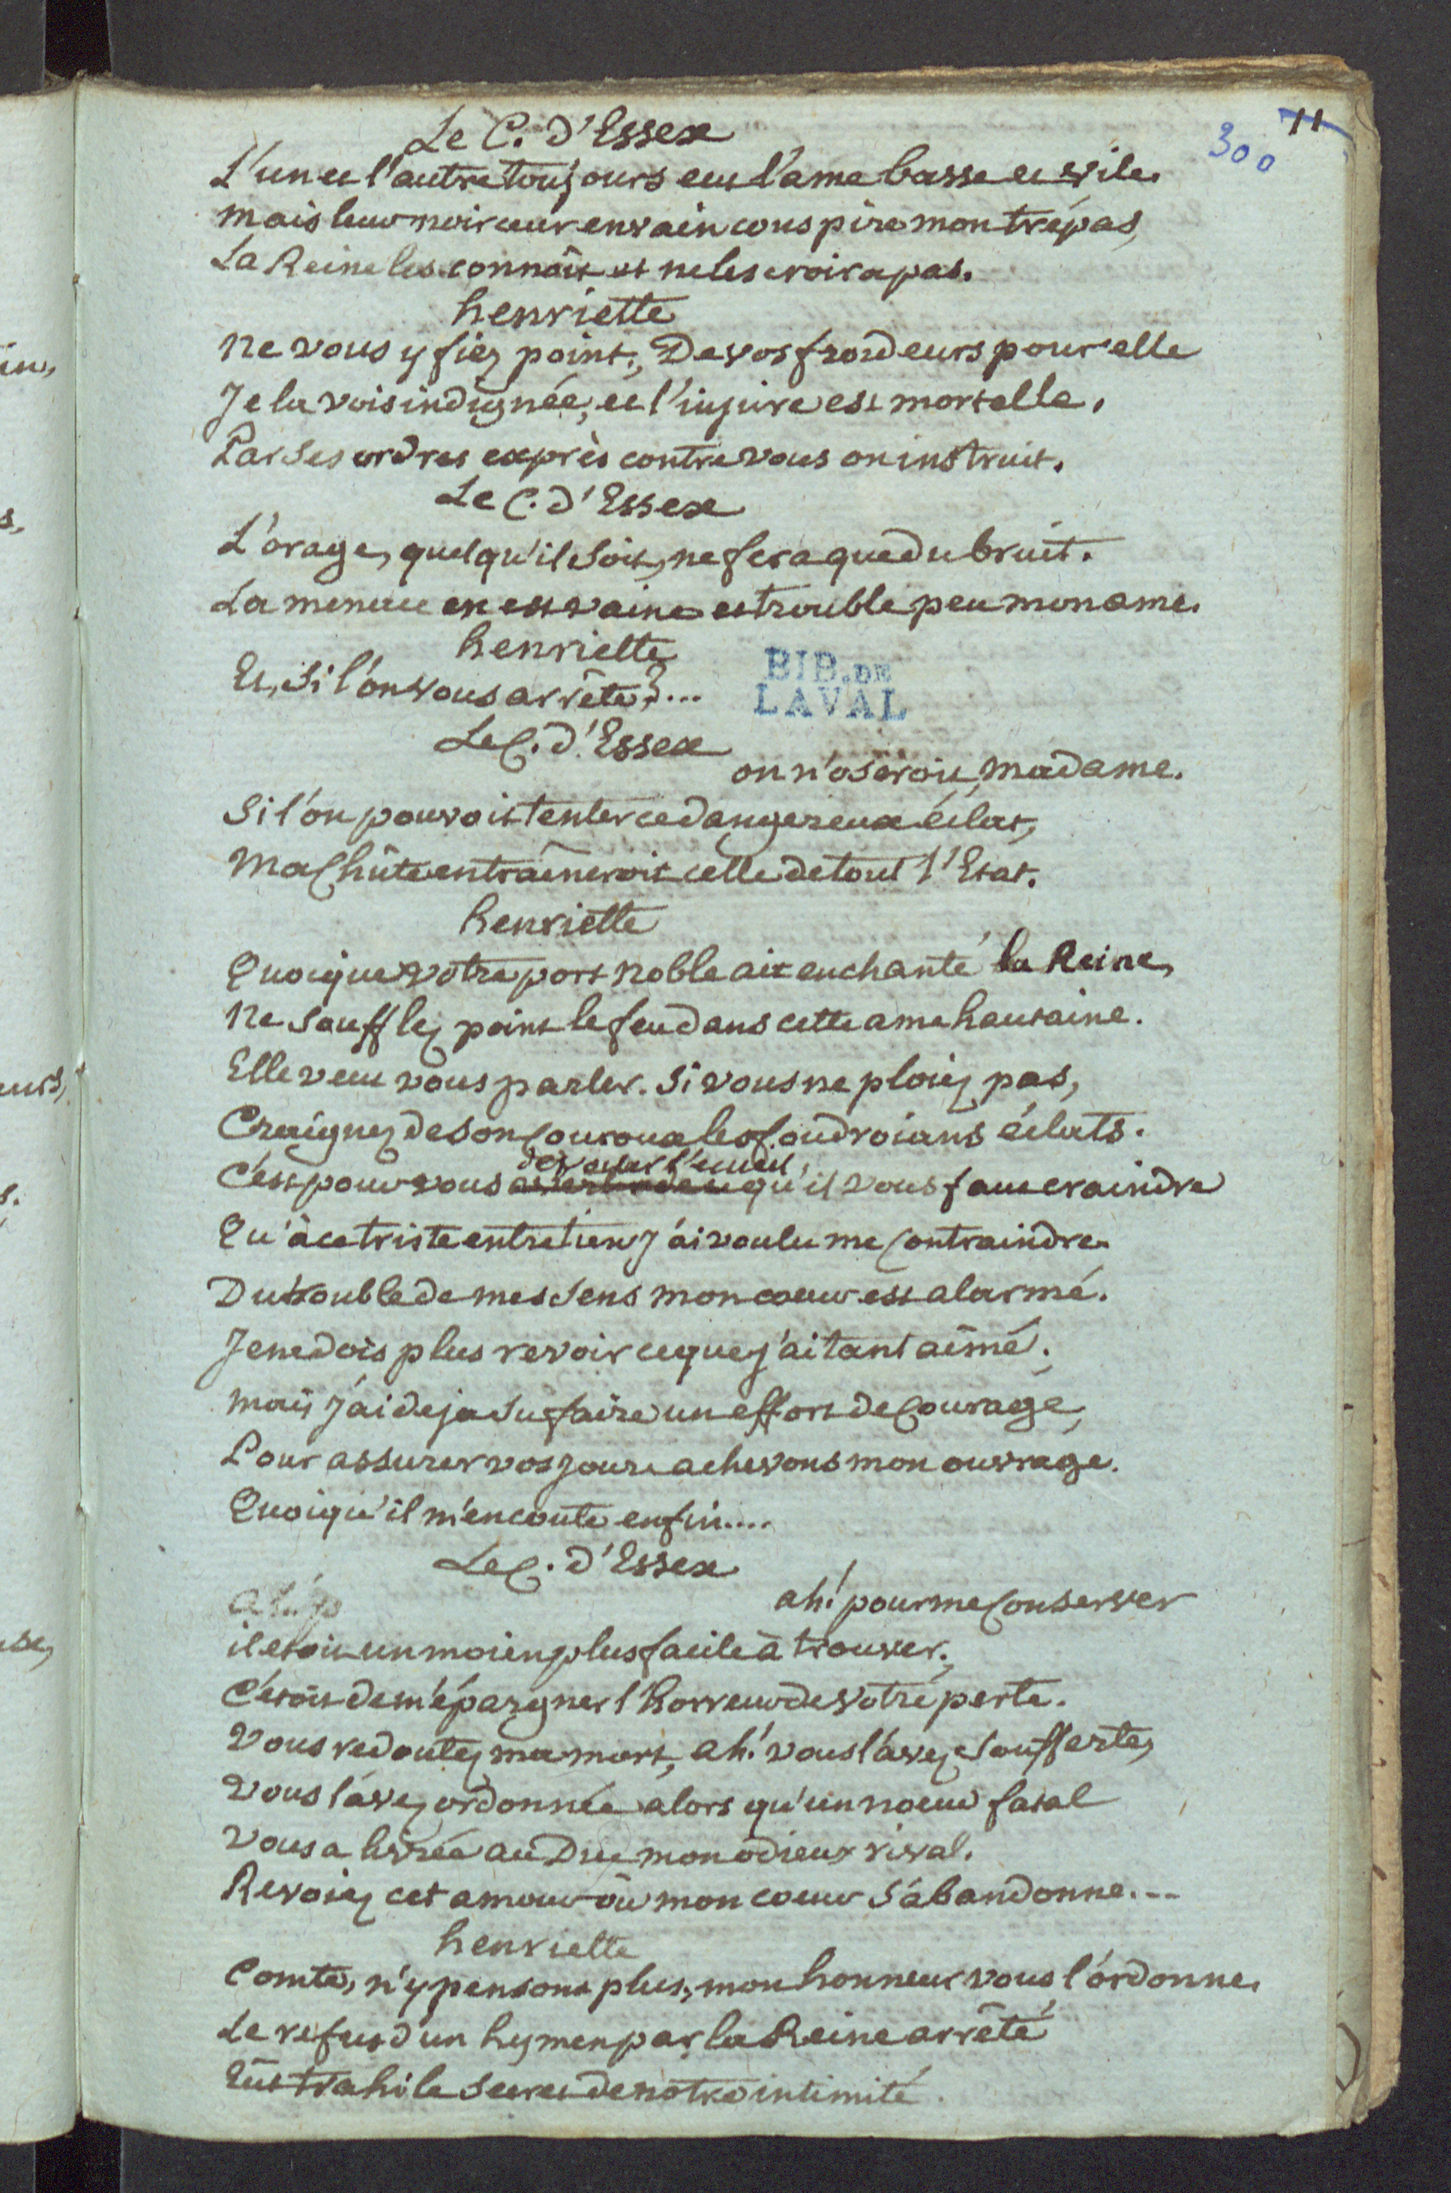 11
300
Le C. d'Essex
L'un et l'autre toujours eut l'ame basse et vile.
mais leur noirceur en vain conspire mon trépas,
La Reine les connait et ne les croira pas.
henriette
Ne vous y fiez point; De vos froideurs pour elle
Je la vois indignée, et l'injure est mortelle.
Par ses ordres exprès contre vous on instruit.
Le C. d'Essex
L'orage, quel qu'il soit, ne fera que du bruit.
La menace en est vaine et trouble peu mon ame.
henriette
Et, si l'on vous arrête?...
BIB. DE
LAVAL
Le C. d'Essex
on n'oseroit, Madame.
Si l'on pouvoit tenter ce dangereux éclat,
Ma Chûte entraîneroit celle de tout l'Etat.
henriette
Quoique votre port noble ait enchanté la Reine,
Ne soufflez point le feu dans cette ame hautaine.
Elle veut vous parler. Si vous ne ploiez pas,
Craignez de son Couroux les foudroians éclats.
l'ecueil
C'est pour vous qu'il vous faut craindre
Qu'à ce triste entretien j'ai voulu me Contraindre.
Du trouble de mes sens mon coeur est alarmé.
Je ne dois plus revoir ce que j'ai tant aimé;
mais j'ai deja su faire un effort de Courage,
Pour assurer vos jours achevons mon ouvrage.
Quoiqu'il m'en coute enfin....
Le C. d'Essex
ah! p
ah! pour me Conserver
il etoit un moien plus facile à trouver;
C'etoit de m'épargner l'horreur de votre perte.
Vous redoutez ma mort, ah! vous l'avez soufferte,
Vous l'avez ordonnée alors qu'un noeud fatal
Vous a livrée au Duc mon odieux rival.
Revoiez cet amour où mon coeur s'abandonne...
henriette
Comte, n'y pensons plus, mon honneur vous l'ordonne.
Le refus d'un hymen par la Reine arrêté
Eût trahi le secret de notre intimité.